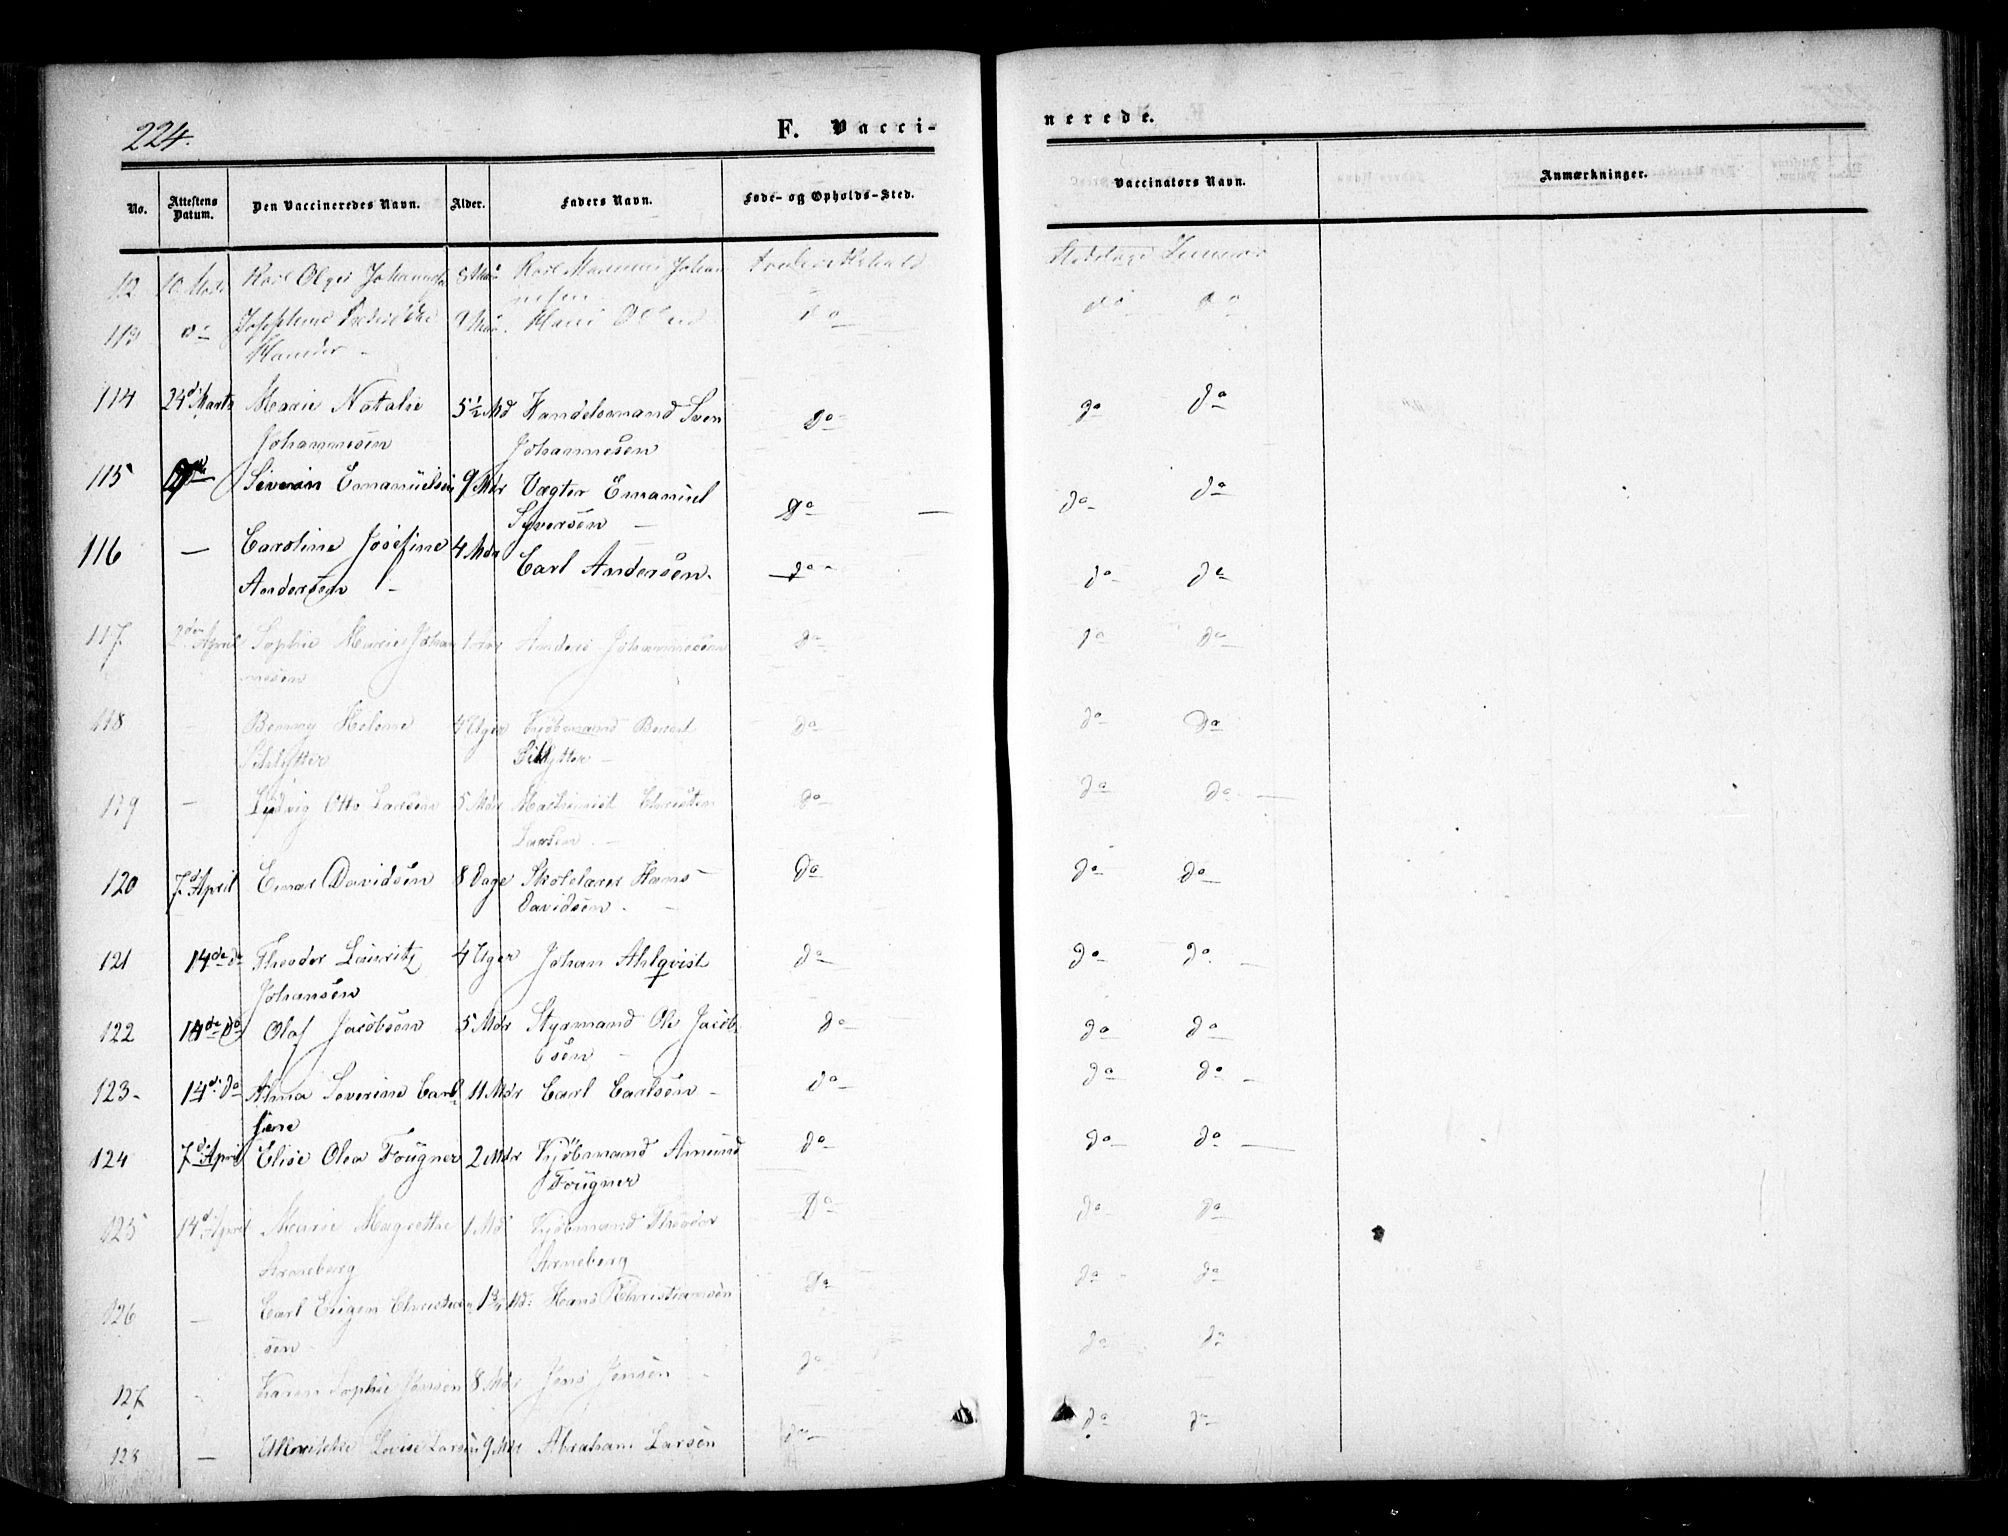 224.
F. Vacci-
nerede.
No.
Attestens Datum.
Den Vaccineredes Navn.
Alder.
Faders Navn.
Føde- og Opholds-Sted.
Vaccinators Navn.
Anmærkninger.
112 Karl Johan
113 do 9 Hans Olsen do do do
114 24d Marts Marie Natalie 5½ Md Handelsmand Sven do do do
Johannesen Johannesen
115 do Severin Emanuelsen 9 Mdr Vægter Emanuel do do do
Syversen —
116 — Caroline Josefine 4 Mdr Carl Andersen. do do do
Andersen -
117. 2den April Sophie Marie Johan Anders Johannesen do do do
nesen
118 - Helene 4 Uger Kjøbmand Berent do do do
Schlytter Schlytter —
119 - Ludvig Otto Larsen 5 Mdr Maskinist Christen do do do
Larsen. -
120 7d April Einar Davidsen 8 Dage Skolelærer Hans do do do
Davidsen. -
121 14de do Theodor Lauritz 4 Uger Johan Ahlqvist do do do
Johansen
122 14de do Olaf Jacobsen 5 Mdr Styrmand Ole Jacob do do do
sen -
123- 14d do Alma Severine Carl 11 Mdr Carl Carlsen - do do do
sene
124 7d April Elise Olea Fougner 2 Mdr Kjöbmand Amund do do do
Fougner
125 14d April Marie Magrethe 1 Md Kjøbmand Theodor do do do
Arneberg Arneberg
126 - Carl Eugen Christian 1¾ Md: Hans Christiansen do do do
sen
127 - Karen Sophie Jensen 8 Mdr Jens Jensen do do do
128 - Ulrikke Lovise Larsen 9 Mdr Abraham Larsen do do do